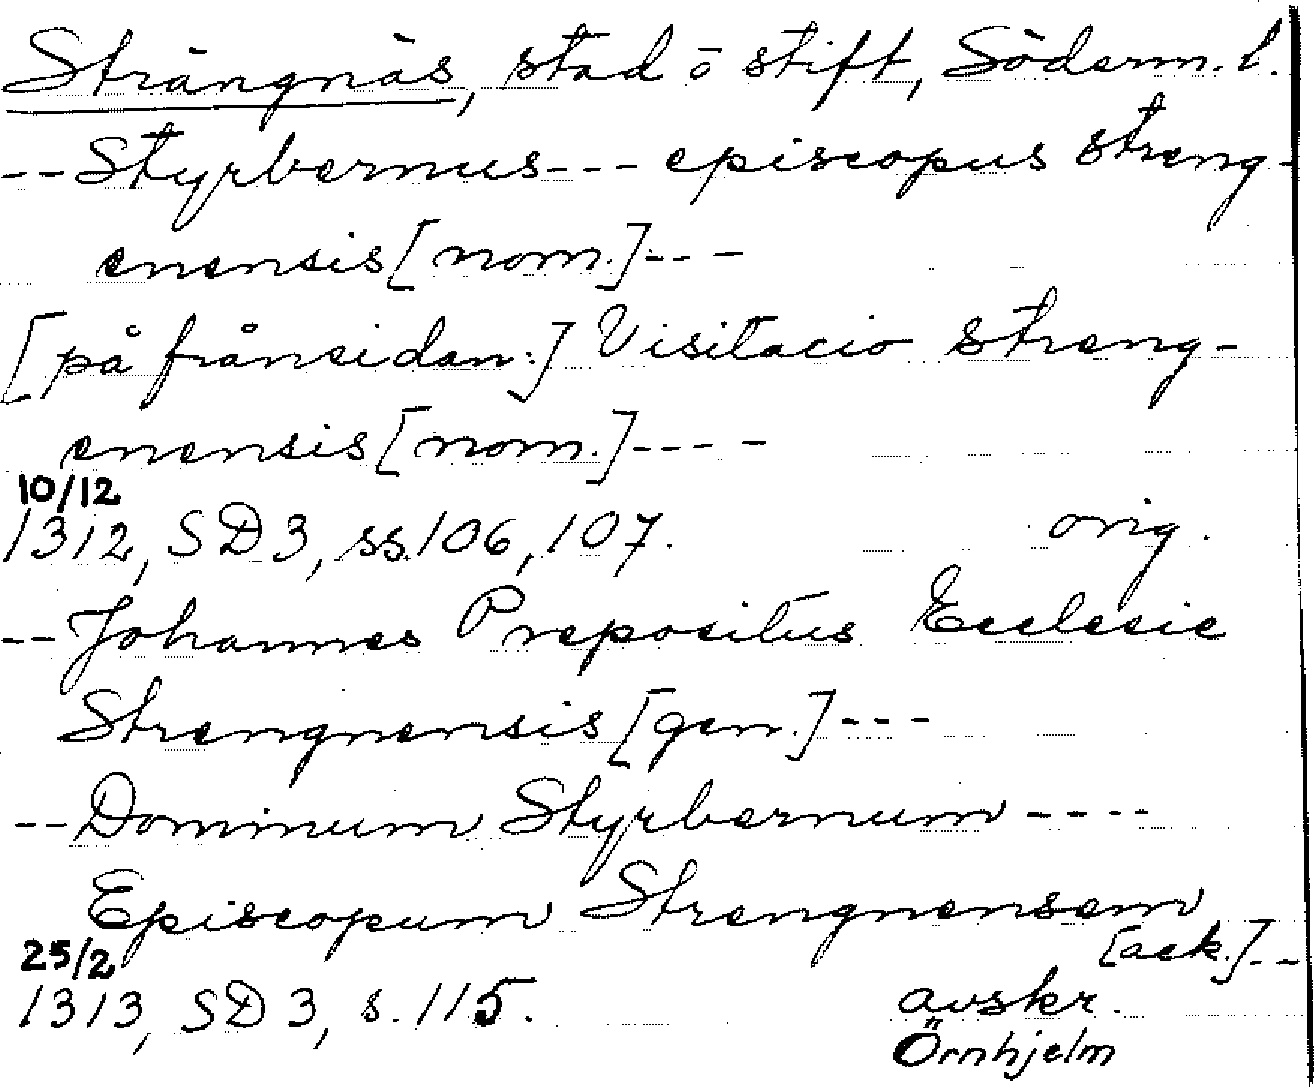 Strängnäs, stad o stift, Söderm. l.
--Styrbernus--- episcopus streng-
enensis [nom.]---
[på frånsidan:] Visitacio streng-
enensis [nom.]----
10/12
1312, SD 3, ss. 106, 107. orig.
--Johannes Prepositus Ecclesie
Strengnensis [gen.]---
--Dominum Styrbernum----
Episcopum Strengnensem
[ack.]--
25/2
1313, SD 3, s. 115. avskr.
Örnhjelm